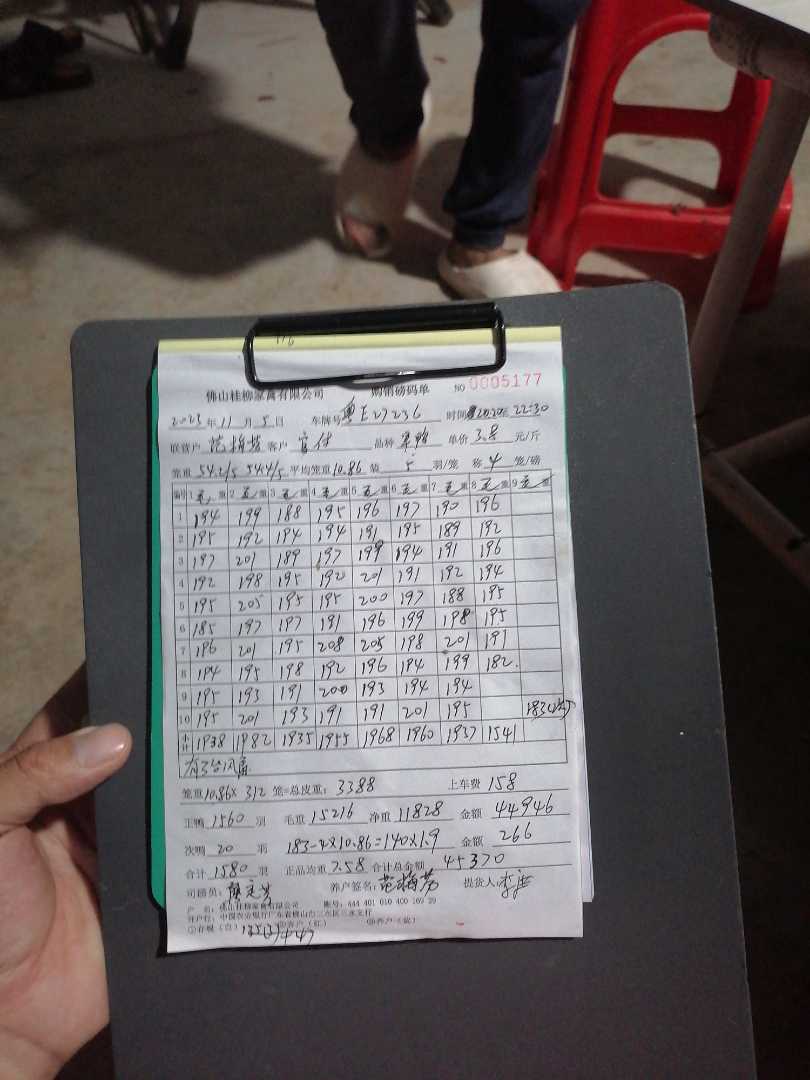 佛山桂柳家禽有限公司 购销磅码单 NO 0005177
2023 年 11 月 5 日 车牌号 粤E27236 时间 20:20至 22:30
联营户 范梅芳 客户 品种 单价 3.8 元/斤
笼重 54.2/5 54.4/5 平均笼重 10.86 装 5 羽/笼 称 4 笼/磅
编号 1 毛 重 2 毛 重 3 毛 重 4 毛 重 5 毛 重 6 毛 重 7 毛 重 8 毛 重 9 毛 重
1 194 199 188 195 196 197 190 196
2 195 192 194 194 191 195 189 192
3 197 201 189 197 199 194 191 196
4 192 198 195 192 201 191 192 194
5 195 205 195 195 200 197 188 195
6 185 197 197 191 196 199 198 195
7 196 201 195 208 205 198 201 191
8 194 195 198 192 196 194 199 182
9 195 193 191 200 193 194 194
10 195 201 193 191 191 201 195 183
小计 1938 1982 1935 1955 1968 1960 1937 1541
笼重 10.86 × 312 笼=总皮重: 3388 上车费 158
正鸭 1560 羽 毛重 15216 净重 11828 金额 44946
次鸭 20 羽 183-4×10.86=140×1.9 金额 266
合计 1580 羽 正品均重 7.58 合计总金额 45370
司磅员: 养户签名: 范梅芳 提货人:
户 名: 佛山桂柳家禽有限公司 账号: 444 401 010 400 169 29
开户行: 中国农业银行广东省佛山市三水区三水支行
①存根(白) ②客户(红) ③养户(蓝)